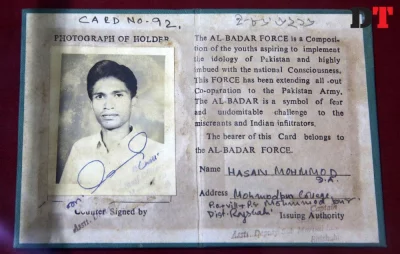 DT
CARD NO-92.
PHOTOGRAPH OF HOLDER
Counter Signed by
The AL-BADAR FORCE is a Composi-
tion of the youths aspiring to implement
the idology of Pakistan and highly
imbued with the national Consciousness.
This FORCE has been extending all-out
Co-operation to the Pakistan Army.
The AL-BADAR is a symbol of fear
and undomitable challenge to the
miscreants and Indian infiltrators.
The bearer of this Card belongs to
the AL-BADAR FORCE.
Name HASAN MOHMMOD
Address Mohmodpur College
Dist. Rajshahi
Issuing Authority